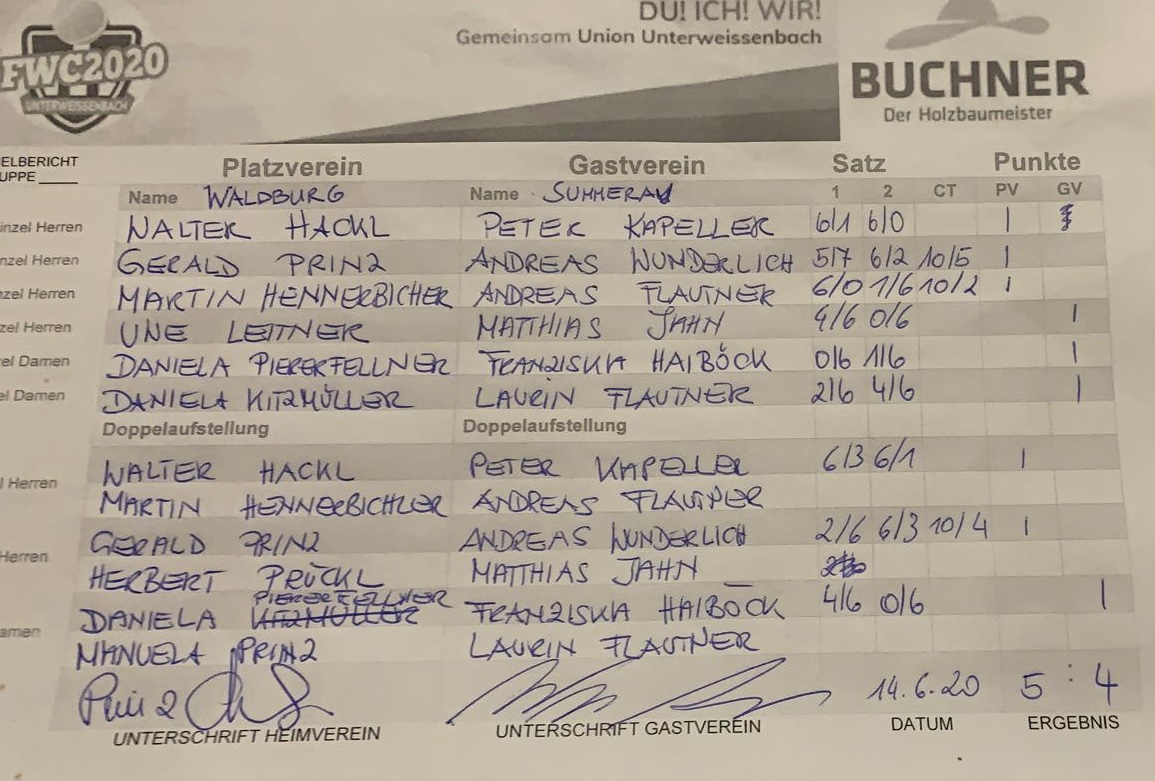 DU! ICH! WIR!
Gemeinsam Union Unterweissenbach
FWC2020
UNTERWEISSENBACH
BUCHNER
Der Holzbaumeister
ELBERICHT
UPPE
Platzverein Gastverein Satz Punkte
Name WALDBURG Name SUMMERAU 1 2 CT PV GV
inzel Herren WALTER HACKL PETER KAPELLER 6/1 6/0 1
nzel Herren GERALD PRINZ ANDREAS WUNDERLICH 5/7 6/2 10/5 1
zel Herren MARTIN HENNERBICHER ANDREAS FLAUTNER 6/0 1/6 10/2 1
zel Herren UNE LEITNER MATTHIAS JAHN 4/6 0/6 1
el Damen DANIELA PIERERFELLNER FRANZISKA HAIBÖCK 0/6 1/6 1
el Damen DANIELA KITZMÜLLER LAURIN FLAUTNER 2/6 4/6 1
Doppelaufstellung Doppelaufstellung
l Herren WALTER HACKL PETER KAPELLER 6/3 6/1 1
MARTIN HENNERBICHLER ANDREAS FLAUTNER
Herren GERALD PRINZ ANDREAS WUNDERLICH 2/6 6/3 10/4 1
HERBERT PRÜCKL MATTHIAS JAHN
PIERERFELLNER
amen DANIELA KITZMÜLLER FRANZISKA HAIBÖCK 4/6 0/6 1
MANUELA PRINZ LAURIN FLAUTNER
Prinz 14.6.20 5 : 4
UNTERSCHRIFT HEIMVEREIN UNTERSCHRIFT GASTVEREIN DATUM ERGEBNIS